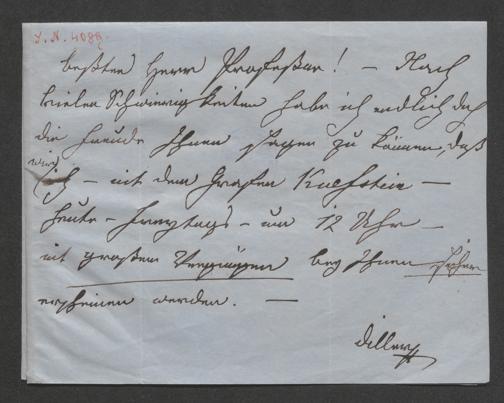 I. N. 4089.
beßter Herr Professor! — Nach
vielen Schwierigkeiten habe ich endlich doch
die Freude Ihnen sagen zu können, daß
wir
ich — mit dem Grafen Kuefstein —
heute — Freytags — um 12 Uhr —
mit großem Vergnügen bey Ihnen
erscheinen werden. —